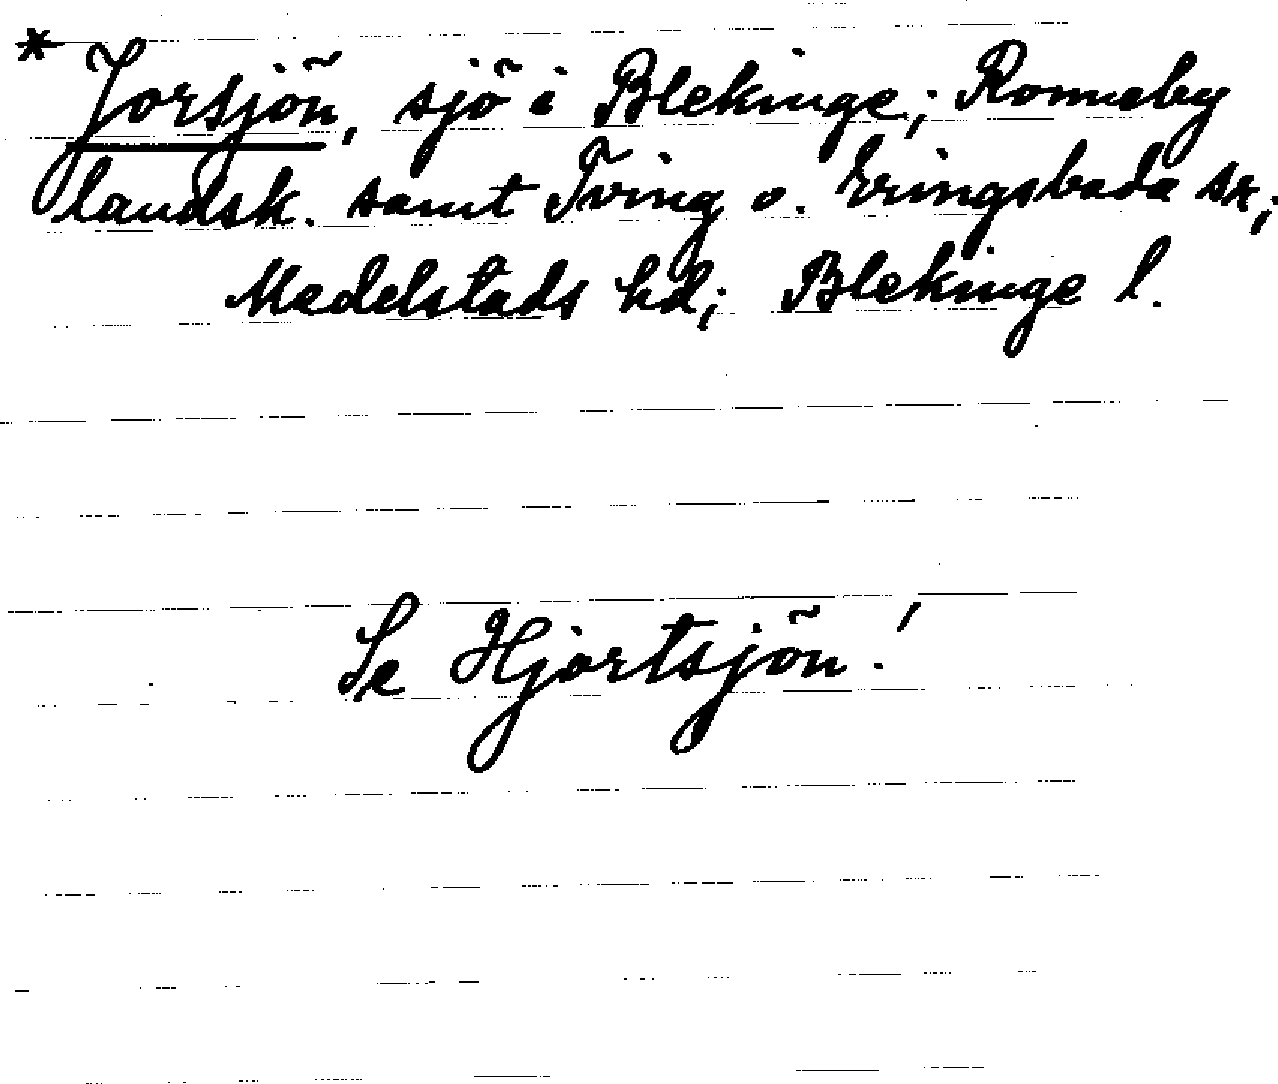 * Jorsjön, sjö i Blekinge; Ronneby
landsk. samt Tving o. Eringsboda sn;
Medelstads hd; Blekinge l.
Se Hjortsjön!